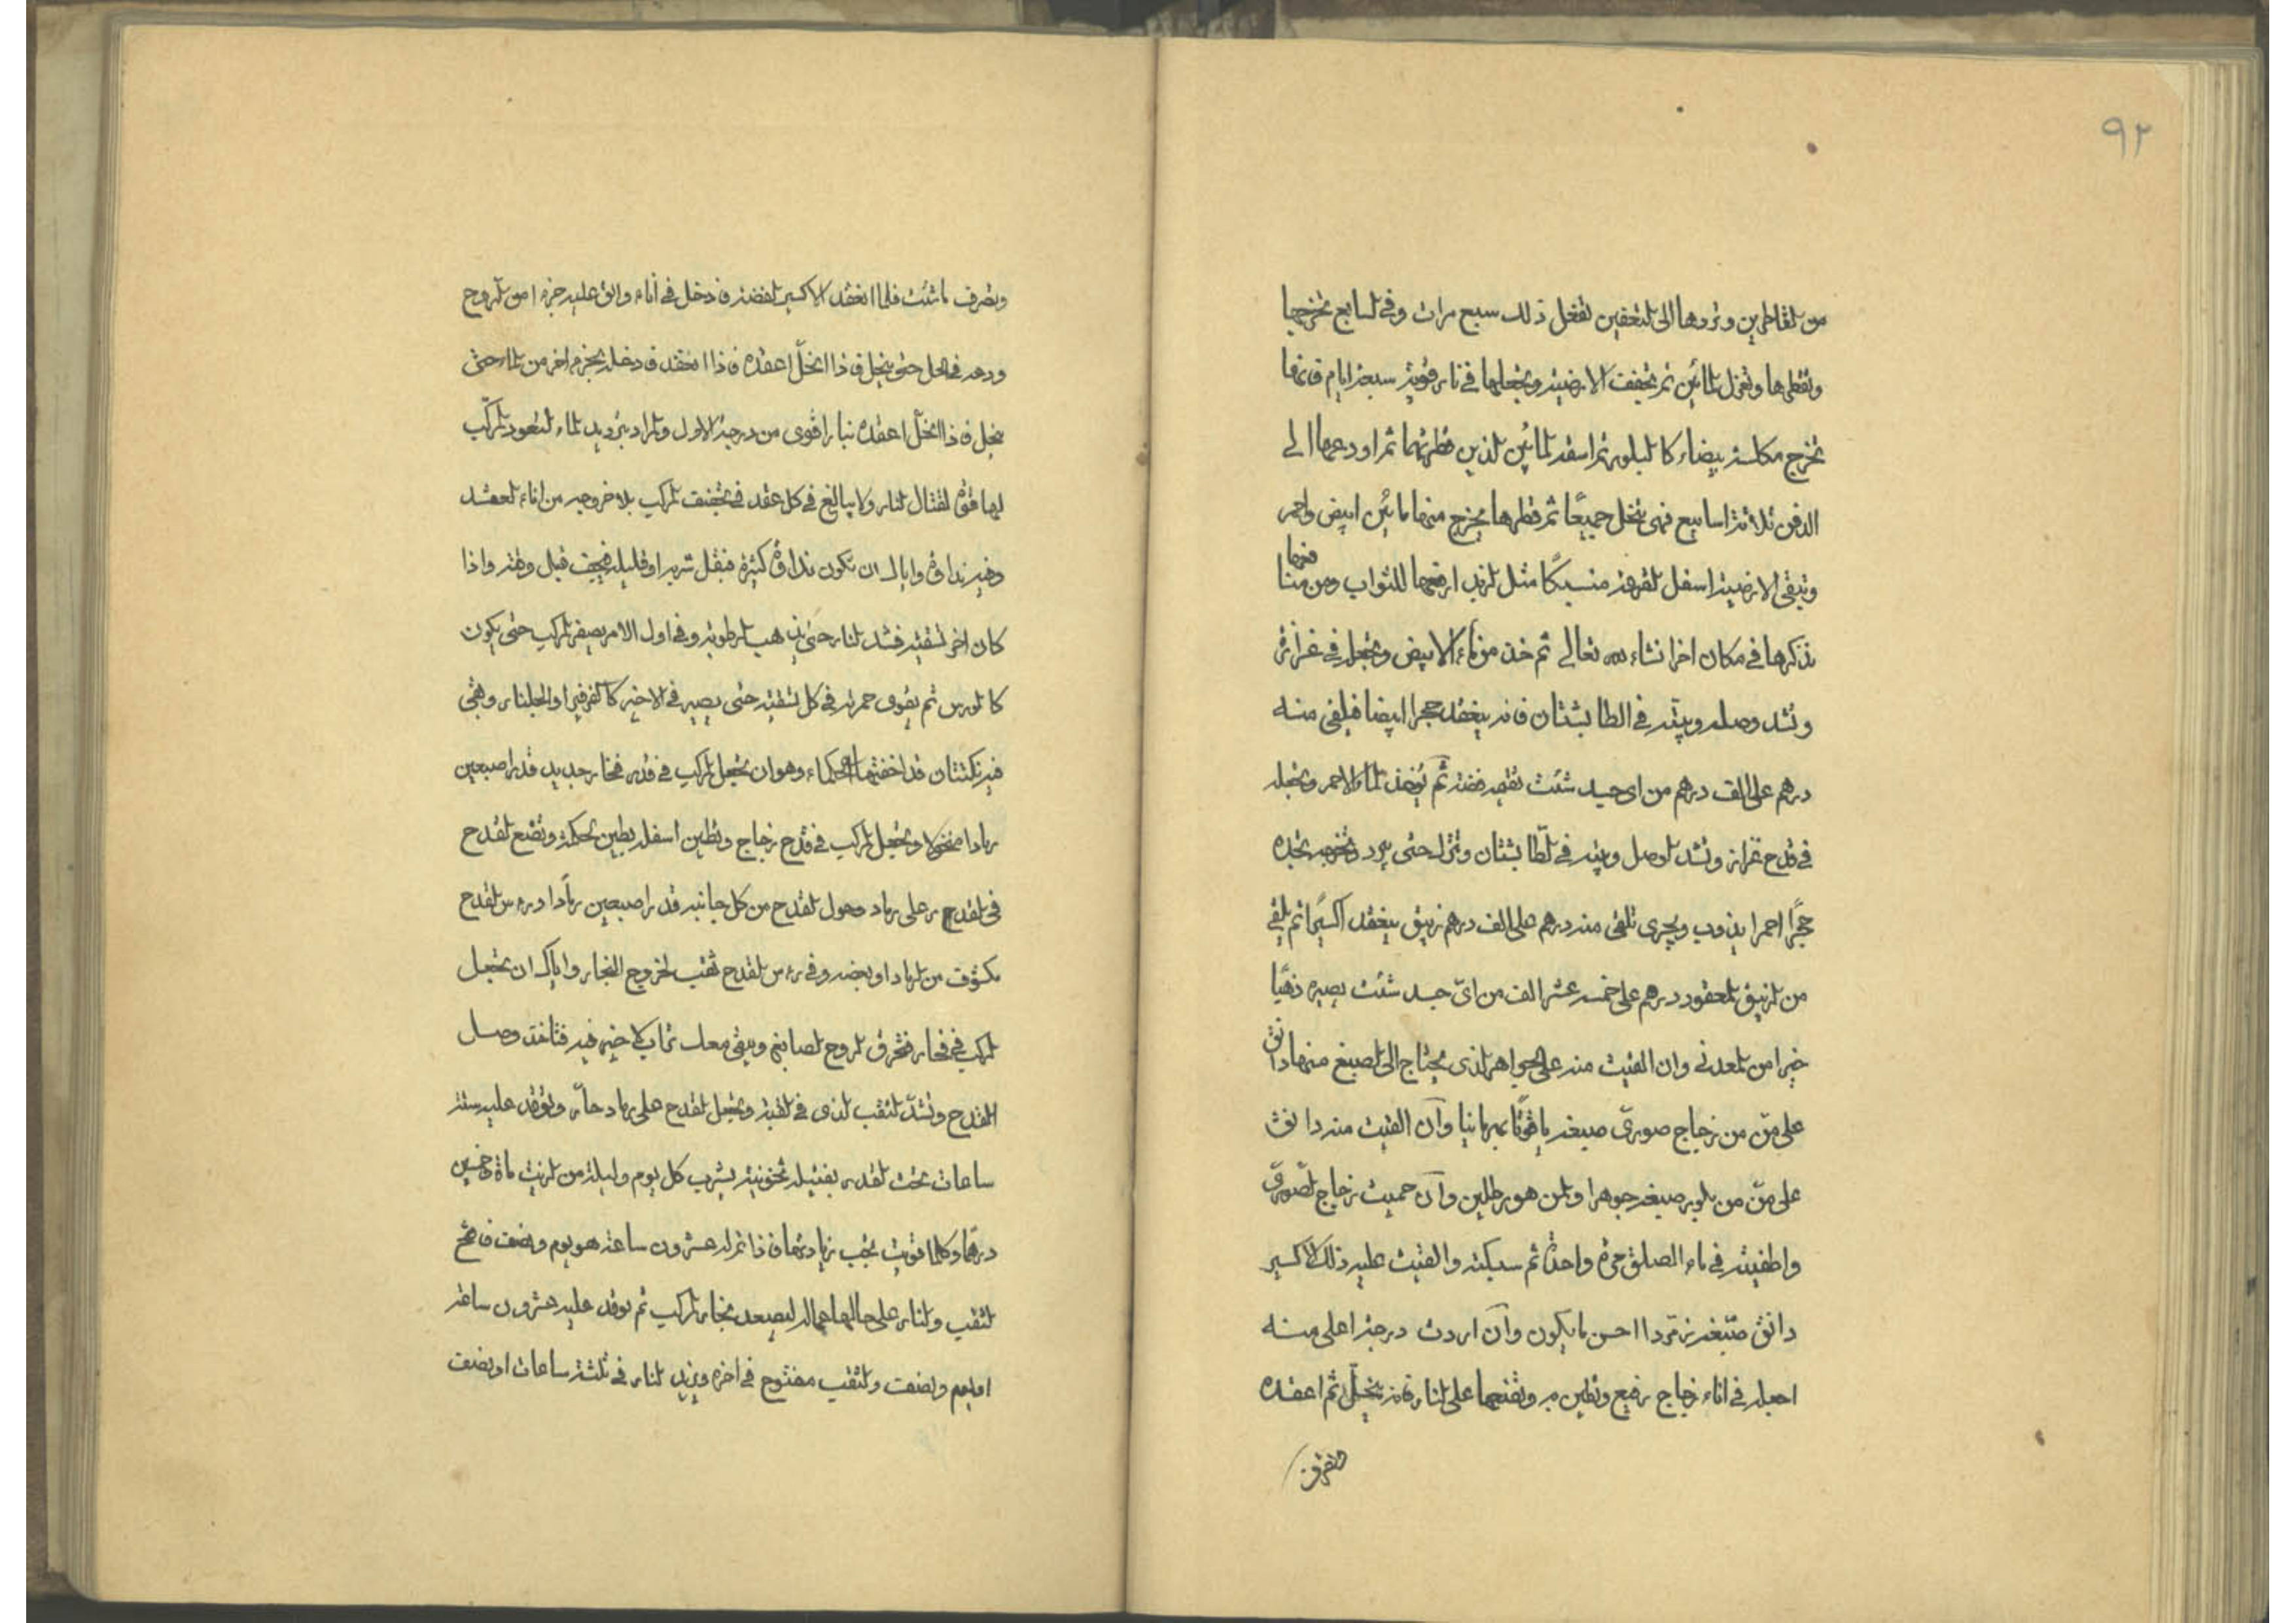 ٩٢
من القاطرين وتردها الى التعفين تفعل ذلك سبع مرات وفي السابع تخرجها
وتقطرها وتعزل المائين ثم تجفف الارضية وتجعلها في نار قوية سبعة ايام فانها
تخرج مكلسة بيضاء كالبلور ثم اسقه المائين الذين قطرتهما ثم اودعها الى
الدفن ثلاثة اسابيع فهى تنحل جميعًا ثم قطرها يخرج منها مائين ابيض واحمر
وتبقى الارضية اسفل القرعة منسبكًا مثل الزبد ارفعها للثواب ومن منافعها
نذكرها في مكان اخر انشاء الله تعالى ثم خذ من ماء الابيض وتجعله في غرازة
وتشد وصله وبيته في الطابشتان فانه ينعقد حجرا ابيضا فيلقى منه
درهم على الف درهم من اى جسد شئت تقيمه فضة ثم يؤخذ الماء الاحمر وتجعله
في قدح غرازة وتشد الوصل وبيته في الطابشتان وتترك حتى يبرد وتخرجه تجده
حجرًا احمرا يذوب ويجرى تلقى منه درهم على الف درهم زيبق ينعقد اكسيرًا ثم يلقى
من الزيبق المعقود درهم على خمسة عشر الف من اىّ جسد شئت يصيره ذهبًا
خيرا من المعدنى وان القيت منه على الجواهر الذى يحتاج الى الصبغ منها دانق
على منّ من زجاج صورىّ صبغه ياقوتًا بهرمانيا وآن القيت منه دانق
على منّ من بلور صبغه جوهرا والمن هو رطلين وآن حميت زجاج الصورىّ
واطفيته في ماء الصلق مرة واحدة ثم سبكته والقيت عليه ذلك الاكسير
دانق صبّغه زمرّدا احسن ما يكون وآن اردت درجة اعلى منه
اجعله في اناء زجاج رفيع وتطين به وتضعها على النار فانه ينحلّ ثم اعقده
وتصرف ما شئت فلما انعقد الاكسير الفضة فادخل في اناء والق عليه جزء من الروح
ودعه في الحل حتى ينحل فاذا انحلّ اعقده فاذا انعقد فادخله بجزء اخر من الماء حتى
ينحل فاذا انحلّ اعقده بنار اقوى من درجة الاول والمراد بترديد الماء لتعود المركّب
لها قوة لقتال النار ولا يبالغ في كل عقد في تجفيف المركب بلا خروجه من اناء العقد
وفيه نداوة واياك ان تكون نداوة كثيرة فيقل شربه او قليلة فيجف قبل وقته واذا
كان اخر تسقية فشد النار حتى يذهب الرطوبة وفي اول الامر يصفر المركب حتى يكون
كالورس ثم يقوى حمرته في كل تسقية حتى يصير في الاخير كالفرفير او الجلنار وهى
فيه نكتتان قد اخفتها الحكماء وهو ان تجعل المركب في قدر فخار جديد قدر اصبعين
رمادا منخولا وتجعل المركب في قدح زجاج وتطين اسفله بطين حكمة وتضع القدح
في القدر على رماد وحول القدح من كل جانبه قدر اصبعين رمادًا ورأس القدح
مكشوف من الرماد او بعضه وفي رأس القدح ثقب لخروج البخار واياك ان تجعل
المركب في فخار فتحرق الروح الصابغ ويبقى معك تراب لا خير فيه فتأخذ وصل
القدح وتشدّ الثقب الذى في القبة وتجعل القدح على رماد حارّ وتوقد عليه ستة
ساعات تحت القدر بفتيلة شرب كل يوم وليلة من الزيت مأة وخمسين
درهمًا وكلما قويت يجب زيادتها فاذا تم له عشرون ساعة هو يوم ونصف فافتح
الثقب والنار على حالها ليصعد بخار المركب ثم توقد عليه عشرون ساعة
او يوم ونصف والثقب مفتوح في اخره ويزيد النار في ثلثة ساعات او نصف